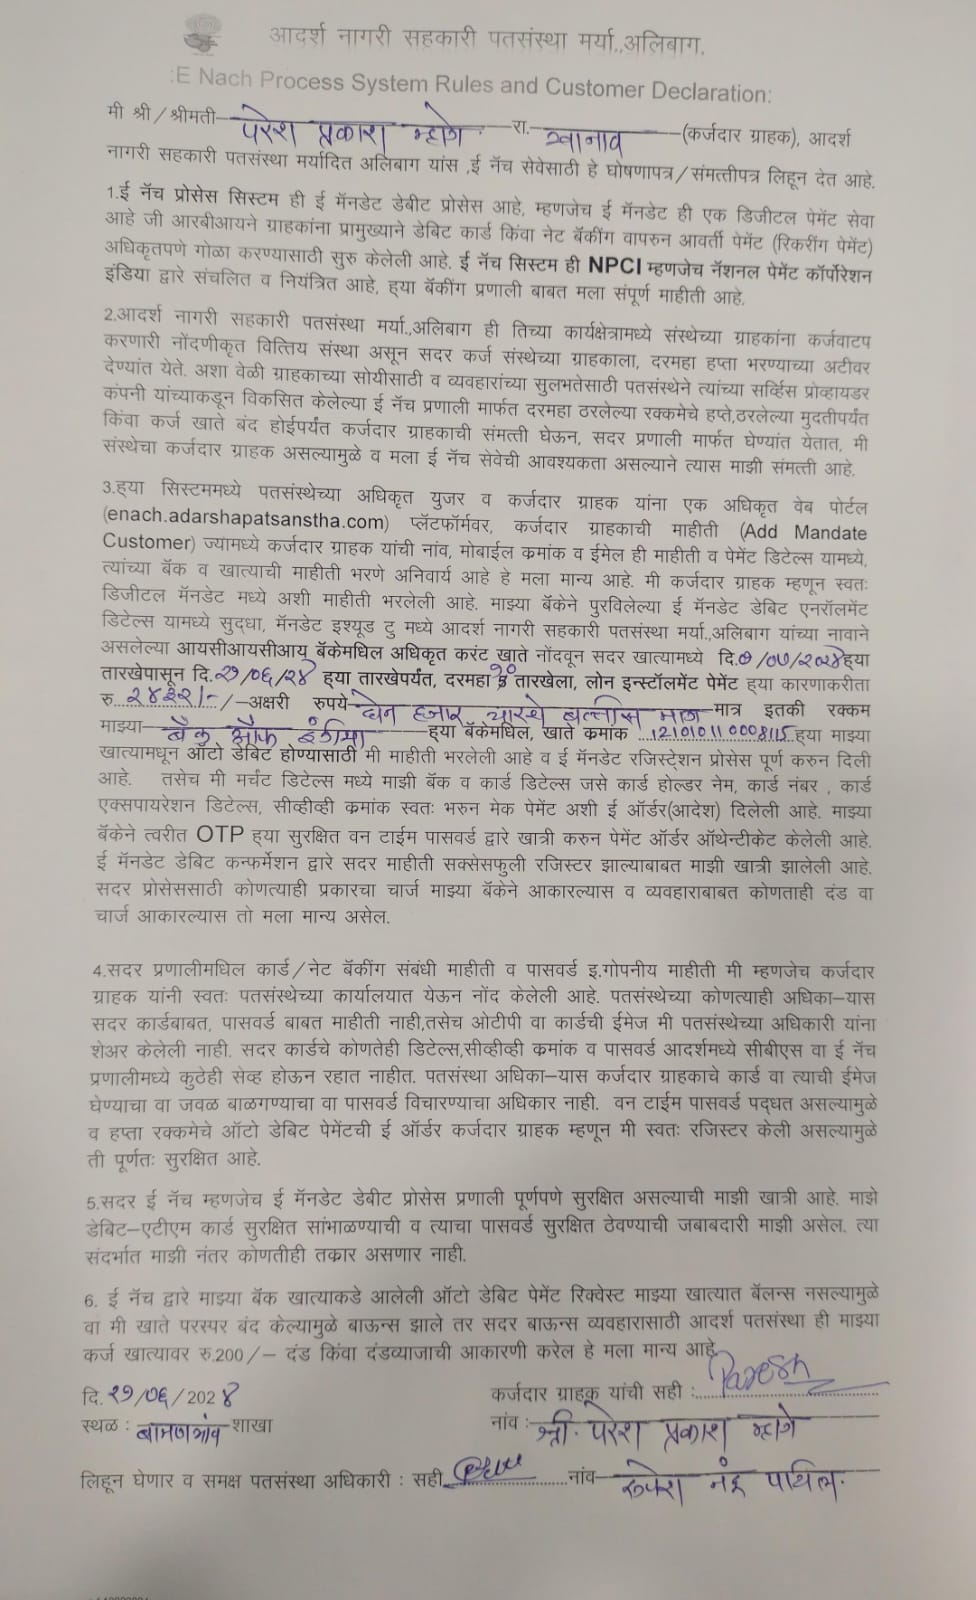 आदर्श नागरी सहकारी पतसंस्था मर्या.,अलिबाग.
:E Nach Process System Rules and Customer Declaration:
मी श्री/श्रीमती परेश प्रकाश म्हात्रे रा. खानाव (कर्जदार ग्राहक), आदर्श
नागरी सहकारी पतसंस्था मर्यादित अलिबाग यांस ,ई नॅच सेवेसाठी हे घोषणापत्र/संमत्तीपत्र लिहून देत आहे.
1.ई नॅच प्रोसेस सिस्टम ही ई मॅनडेट डेबीट प्रोसेस आहे, म्हणजेच ई मॅनडेट ही एक डिजीटल पेमेंट सेवा
आहे जी आरबीआयने ग्राहकांना प्रामुख्याने डेबिट कार्ड किंवा नेट बॅकींग वापरुन आवर्ती पेमेंट (रिकरींग पेमेंट)
अधिकृतपणे गोळा करण्यासाठी सुरु केलेली आहे. ई नॅच सिस्टम ही NPCI म्हणजेच नॅशनल पेमेंट कॉर्पोरेशन
इंडिया द्वारे संचलित व नियंत्रित आहे, ह्या बॅकींग प्रणाली बाबत मला संपूर्ण माहीती आहे.
2.आदर्श नागरी सहकारी पतसंस्था मर्या.,अलिबाग ही तिच्या कार्यक्षेत्रामध्ये संस्थेच्या ग्राहकांना कर्जवाटप
करणारी नोंदणीकृत वित्तिय संस्था असून सदर कर्ज संस्थेच्या ग्राहकाला, दरमहा हप्ता भरण्याच्या अटीवर
देण्यांत येते. अशा वेळी ग्राहकाच्या सोयीसाठी व व्यवहारांच्या सुलभतेसाठी पतसंस्थेने त्यांच्या सर्व्हिस प्रोव्हायडर
कंपनी यांच्याकडून विकसित केलेल्या ई नॅच प्रणाली मार्फत दरमहा ठरलेल्या रक्कमेचे हप्ते,ठरलेल्या मुदतीपर्यंत
किंवा कर्ज खाते बंद होईपर्यंत कर्जदार ग्राहकाची संमत्ती घेऊन, सदर प्रणाली मार्फत घेण्यांत येतात, मी
संस्थेचा कर्जदार ग्राहक असल्यामुळे व मला ई नॅच सेवेची आवश्यकता असल्याने त्यास माझी संमत्ती आहे.
3.ह्या सिस्टममध्ये पतसंस्थेच्या अधिकृत युजर व कर्जदार ग्राहक यांना एक अधिकृत वेब पोर्टल
(enach.adarshapatsanstha.com) प्लॅटफॉर्मवर, कर्जदार ग्राहकाची माहीती (Add Mandate
Customer) ज्यामध्ये कर्जदार ग्राहक यांची नांव, मोबाईल क्रमांक व ईमेल ही माहीती व पेमेंट डिटेल्स यामध्ये,
त्यांच्या बॅक व खात्याची माहीती भरणे अनिवार्य आहे हे मला मान्य आहे. मी कर्जदार ग्राहक म्हणून स्वतः
डिजीटल मॅनडेट मध्ये अशी माहीती भरलेली आहे. माझ्या बॅकेने पुरविलेल्या ई मॅनडेट डेबिट एनरॉलमेंट
डिटेल्स यामध्ये सुद्धा, मॅनडेट इश्यूड टु मध्ये आदर्श नागरी सहकारी पतसंस्था मर्या.,अलिबाग यांच्या नावाने
असलेल्या आयसीआयसीआय बॅकेमधिल अधिकृत करंट खाते नोंदवून सदर खात्यामध्ये दि. /०७/२०२४ह्या
तारखेपासून दि.२१/०६/२४ ह्या तारखेपर्यंत, दरमहा १० तारखेला, लोन इन्स्टॉलमेंट पेमेंट ह्या कारणाकरीता
रु २४३२/- /-अक्षरी रुपये दोन हजार चारशे बत्तीस मात्र मात्र इतकी रक्कम
माझ्या बँक ऑफ इंडीया ह्या बॅकेमधिल, खाते क्रमांक 121010110008115 ह्या माझ्या
खात्यामधून ऑटो डेबिट होण्यासाठी मी माहीती भरलेली आहे व ई मॅनडेट रजिस्ट्रेशन प्रोसेस पूर्ण करुन दिली
आहे. तसेच मी मर्चंट डिटेल्स मध्ये माझी बॅक व कार्ड डिटेल्स जसे कार्ड होल्डर नेम, कार्ड नंबर , कार्ड
एक्सपायरेशन डिटेल्स, सीव्हीव्ही क्रमांक स्वतः भरुन मेक पेमेंट अशी ई ऑर्डर(आदेश) दिलेली आहे. माझ्या
बॅकेने त्वरीत OTP ह्या सुरक्षित वन टाईम पासवर्ड द्वारे खात्री करुन पेमेंट ऑर्डर ऑथेन्टीकेट केलेली आहे.
ई मॅनडेट डेबिट कन्फर्मेशन द्वारे सदर माहीती सक्सेसफुली रजिस्टर झाल्याबाबत माझी खात्री झालेली आहे.
सदर प्रोसेससाठी कोणत्याही प्रकारचा चार्ज माझ्या बॅकेने आकारल्यास व व्यवहाराबाबत कोणताही दंड वा
चार्ज आकारल्यास तो मला मान्य असेल.
4.सदर प्रणालीमधिल कार्ड/नेट बॅकींग संबंधी माहीती व पासवर्ड इ.गोपनीय माहीती मी म्हणजेच कर्जदार
ग्राहक यांनी स्वतः पतसंस्थेच्या कार्यालयात येऊन नोंद केलेली आहे. पतसंस्थेच्या कोणत्याही अधिका-यास
सदर कार्डबाबत, पासवर्ड बाबत माहीती नाही,तसेच ओटीपी वा कार्डची ईमेज मी पतसंस्थेच्या अधिकारी यांना
शेअर केलेली नाही. सदर कार्डचे कोणतेही डिटेल्स,सीव्हीव्ही क्रमांक व पासवर्ड आदर्शमध्ये सीबीएस वा ई नॅच
प्रणालीमध्ये कुठेही सेव्ह होऊन रहात नाहीत. पतसंस्था अधिका-यास कर्जदार ग्राहकाचे कार्ड वा त्याची ईमेज
घेण्याचा वा जवळ बाळगण्याचा वा पासवर्ड विचारण्याचा अधिकार नाही. वन टाईम पासवर्ड पद्धत असल्यामुळे
व हप्ता रक्कमेचे ऑटो डेबिट पेमेंटची ई ऑर्डर कर्जदार ग्राहक म्हणून मी स्वतः रजिस्टर केली असल्यामुळे
ती पूर्णतः सुरक्षित आहे.
5.सदर ई नॅच म्हणजेच ई मॅनडेट डेबीट प्रोसेस प्रणाली पूर्णपणे सुरक्षित असल्याची माझी खात्री आहे. माझे
डेबिट-एटीएम कार्ड सुरक्षित सांभाळण्याची व त्याचा पासवर्ड सुरक्षित ठेवण्याची जबाबदारी माझी असेल. त्या
संदर्भात माझी नंतर कोणतीही तक्रार असणार नाही.
6. ई नॅच द्वारे माझ्या बॅक खात्याकडे आलेली ऑटो डेबिट पेमेंट रिक्वेस्ट माझ्या खात्यात बॅलन्स नसल्यामुळे
वा मी खाते परस्पर बंद केल्यामुळे बाऊन्स झाले तर सदर बाऊन्स व्यवहारासाठी आदर्श पतसंस्था ही माझ्या
कर्ज खात्यावर रु.200/- दंड किंवा दंडव्याजाची आकारणी करेल हे मला मान्य आहे.
दि.२१/०६/202४ कर्जदार ग्राहक यांची सही : Paresh
स्थळ : बामणगांव शाखा नांव: श्री. परेश प्रकाश म्हात्रे
लिहून घेणार व समक्ष पतसंस्था अधिकारी : सही नांव- रुपेश नंदू पाटील.